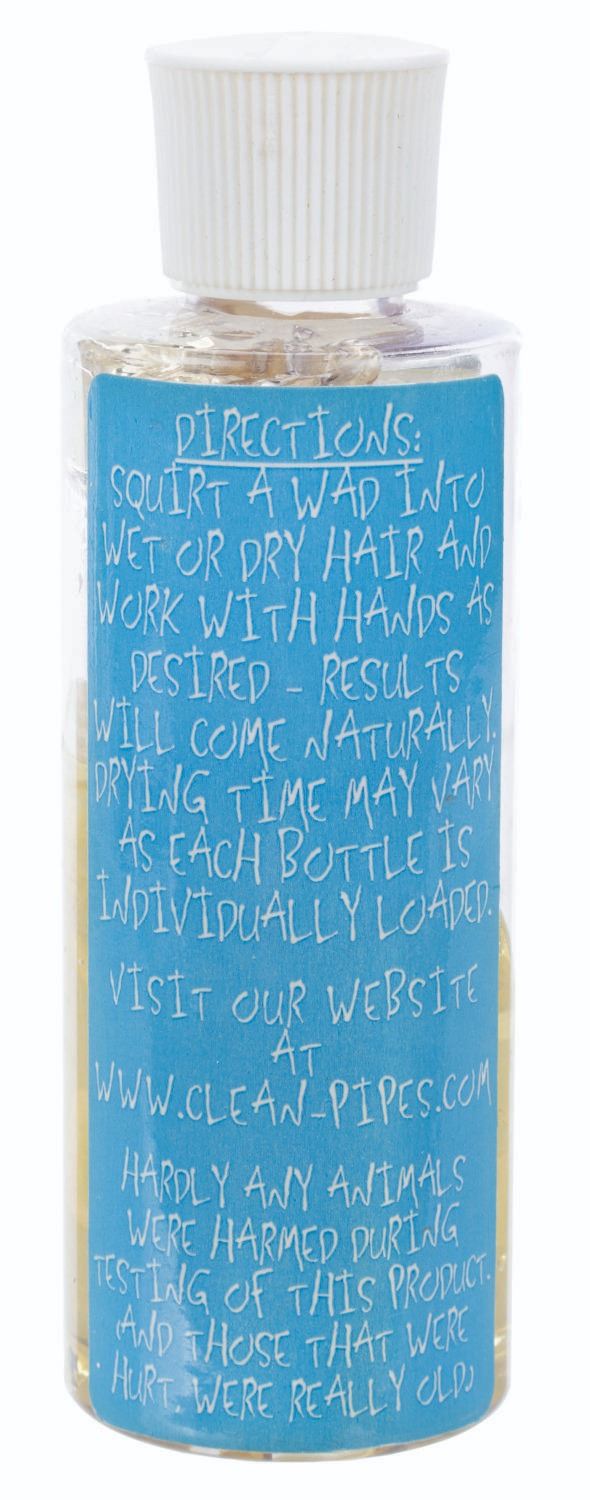 DIRECTIONS:
SQUIRT A WAD INTO
WET OR DRY HAIR AND
WORK WITH HANDS AS
DESIRED - RESULTS
WILL COME NATURALLY.
DRYING TIME MAY VARY
AS EACH BOTTLE IS
INDIVIDUALLY LOADED.
VISIT OUR WEBSITE
AT
WWW.CLEAN-PIPES.COM
HARDLY ANY ANIMALS
WERE HARMED DURING
TESTING OF THIS PRODUCT.
(AND THOSE THAT WERE
HURT, WERE REALLY OLD)